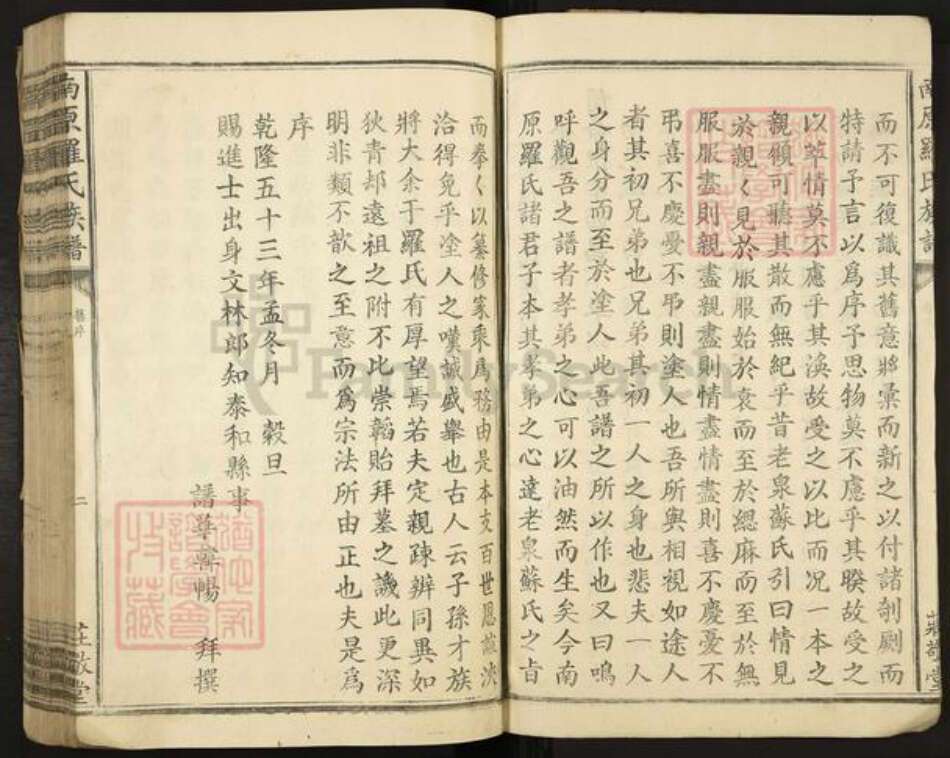 而不可復識其舊意將彙而新之以付諸剞劂而
特請予言以為序予思物莫不慮乎其睽故受之
以萃情莫不應乎其渙故受之以比而況一本之
親顧可聽其散而無紀乎昔老泉蘇氏引曰情見
於親く見於服服始於衰而至於緦麻而至於無
服服盡則親盡親盡則情盡情盡則喜不慶憂不
弔喜不慶憂不弔則塗人也吾所與相視如途人
者其初兄弟也兄弟其初一人之身也悲夫一人
之身分而至於塗人此吾譜之所以作也又曰嗚
呼觀吾之譜者孝弟之心可以油然而生矣今南
原羅氏諸君子本其孝弟之心達老泉蘇氏之旨
南原羅氏族譜
而拳く以纂修家乘為務由是本支百世恩誼浹
洽得免乎塗人之嘆誠盛舉也古人云子孫才族
將大余于羅氏有厚望焉若夫定親疎辨同異如
狄青却遠祖之附不比崇韜貽拜墓之譏此更深
明非類不歆之至意而為宗法所由正也夫是為
序
乾隆五十三年孟冬月 穀旦
賜進士出身文林郎知泰和縣事
暢 拜撰
南原羅氏族譜
舊序
二
莊敬堂
FamilySearch